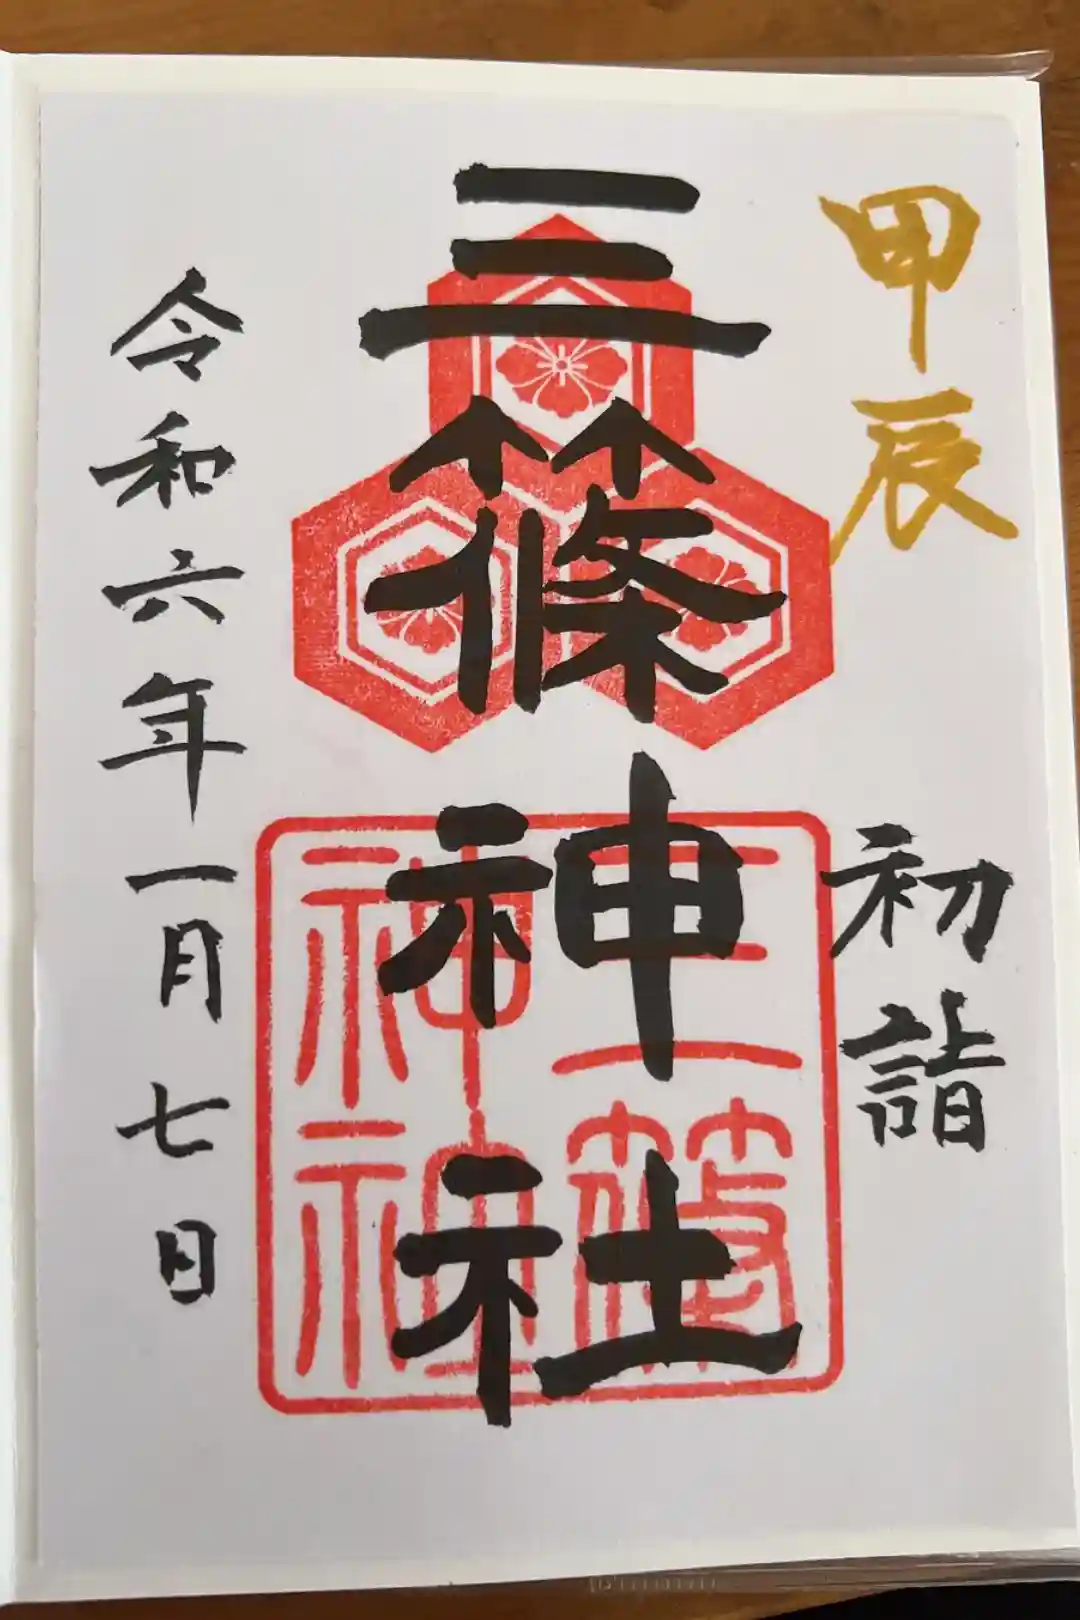 甲辰
初詣
三篠神社
三篠
神社
令和六年一月七日